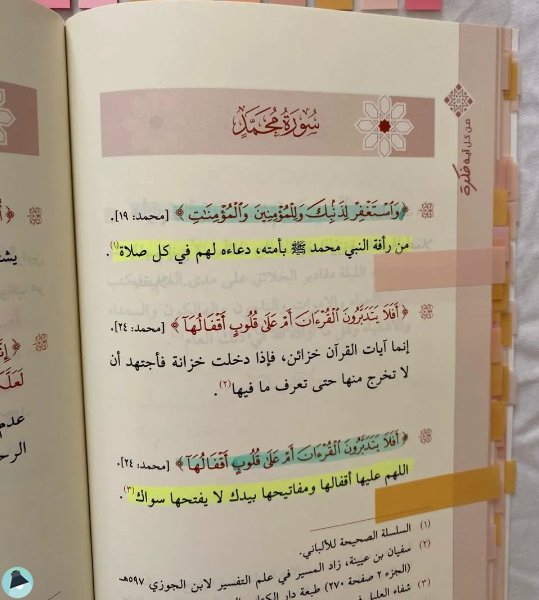 سُورَةُ مُحَمَّدٍ
من كل آية فكرة
﴿ وَٱسْتَغْفِرْ لِذَنۢبِكَ وَلِلْمُؤْمِنِينَ وَٱلْمُؤْمِنَٰتِ ﴾ [محمد: ١٩].
من رأفة النبي محمد ﷺ بأمته، دعاءه لهم في كل صلاة(١).
﴿ أَفَلَا يَتَدَبَّرُونَ ٱلْقُرْءَانَ أَمْ عَلَىٰ قُلُوبٍ أَقْفَالُهَآ ﴾ [محمد: ٢٤].
إنما آيات القرآن خزائن، فإذا دخلت خزانة فأجتهد أن
لا تخرج منها حتى تعرف ما فيها(٢).
﴿ أَفَلَا يَتَدَبَّرُونَ ٱلْقُرْءَانَ أَمْ عَلَىٰ قُلُوبٍ أَقْفَالُهَآ ﴾ [محمد: ٢٤].
اللهم عليها أقفالها ومفاتيحها بيدك لا يفتحها سواك(٣).
(١) السلسلة الصحيحة للألباني.
(٢) سفيان بن عيينة، زاد المسير في علم التفسير لابن الجوزي ٥٩٧هـ
(الجزء ٢ صفحة ٢٧٠) طبعة دار الكتاب
(٣) شفاء العليل